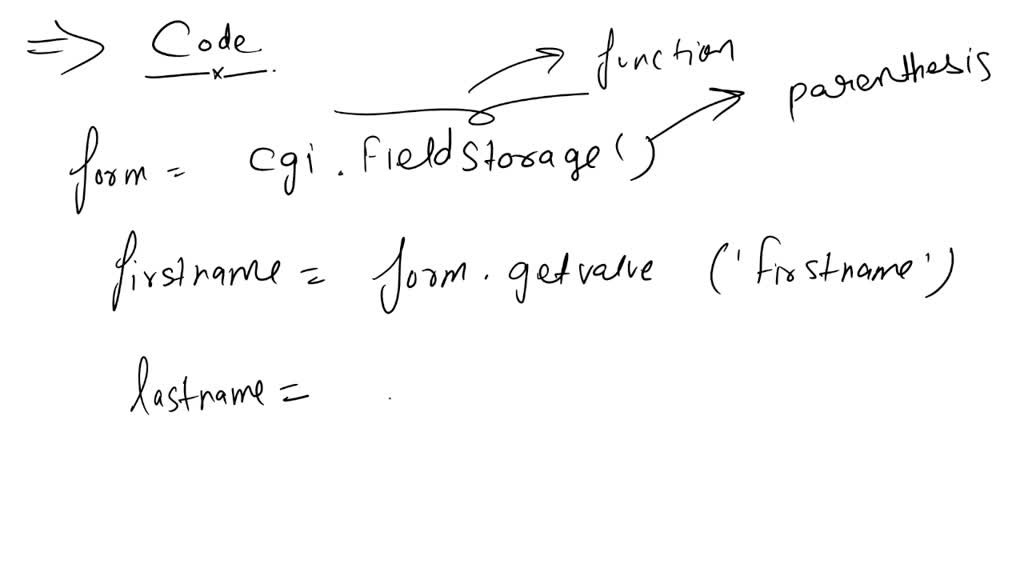 ⇒ Code
function
parenthesis
form = cgi.FieldStorage()
firstname = form.getvalue ('firstname')
lastname =